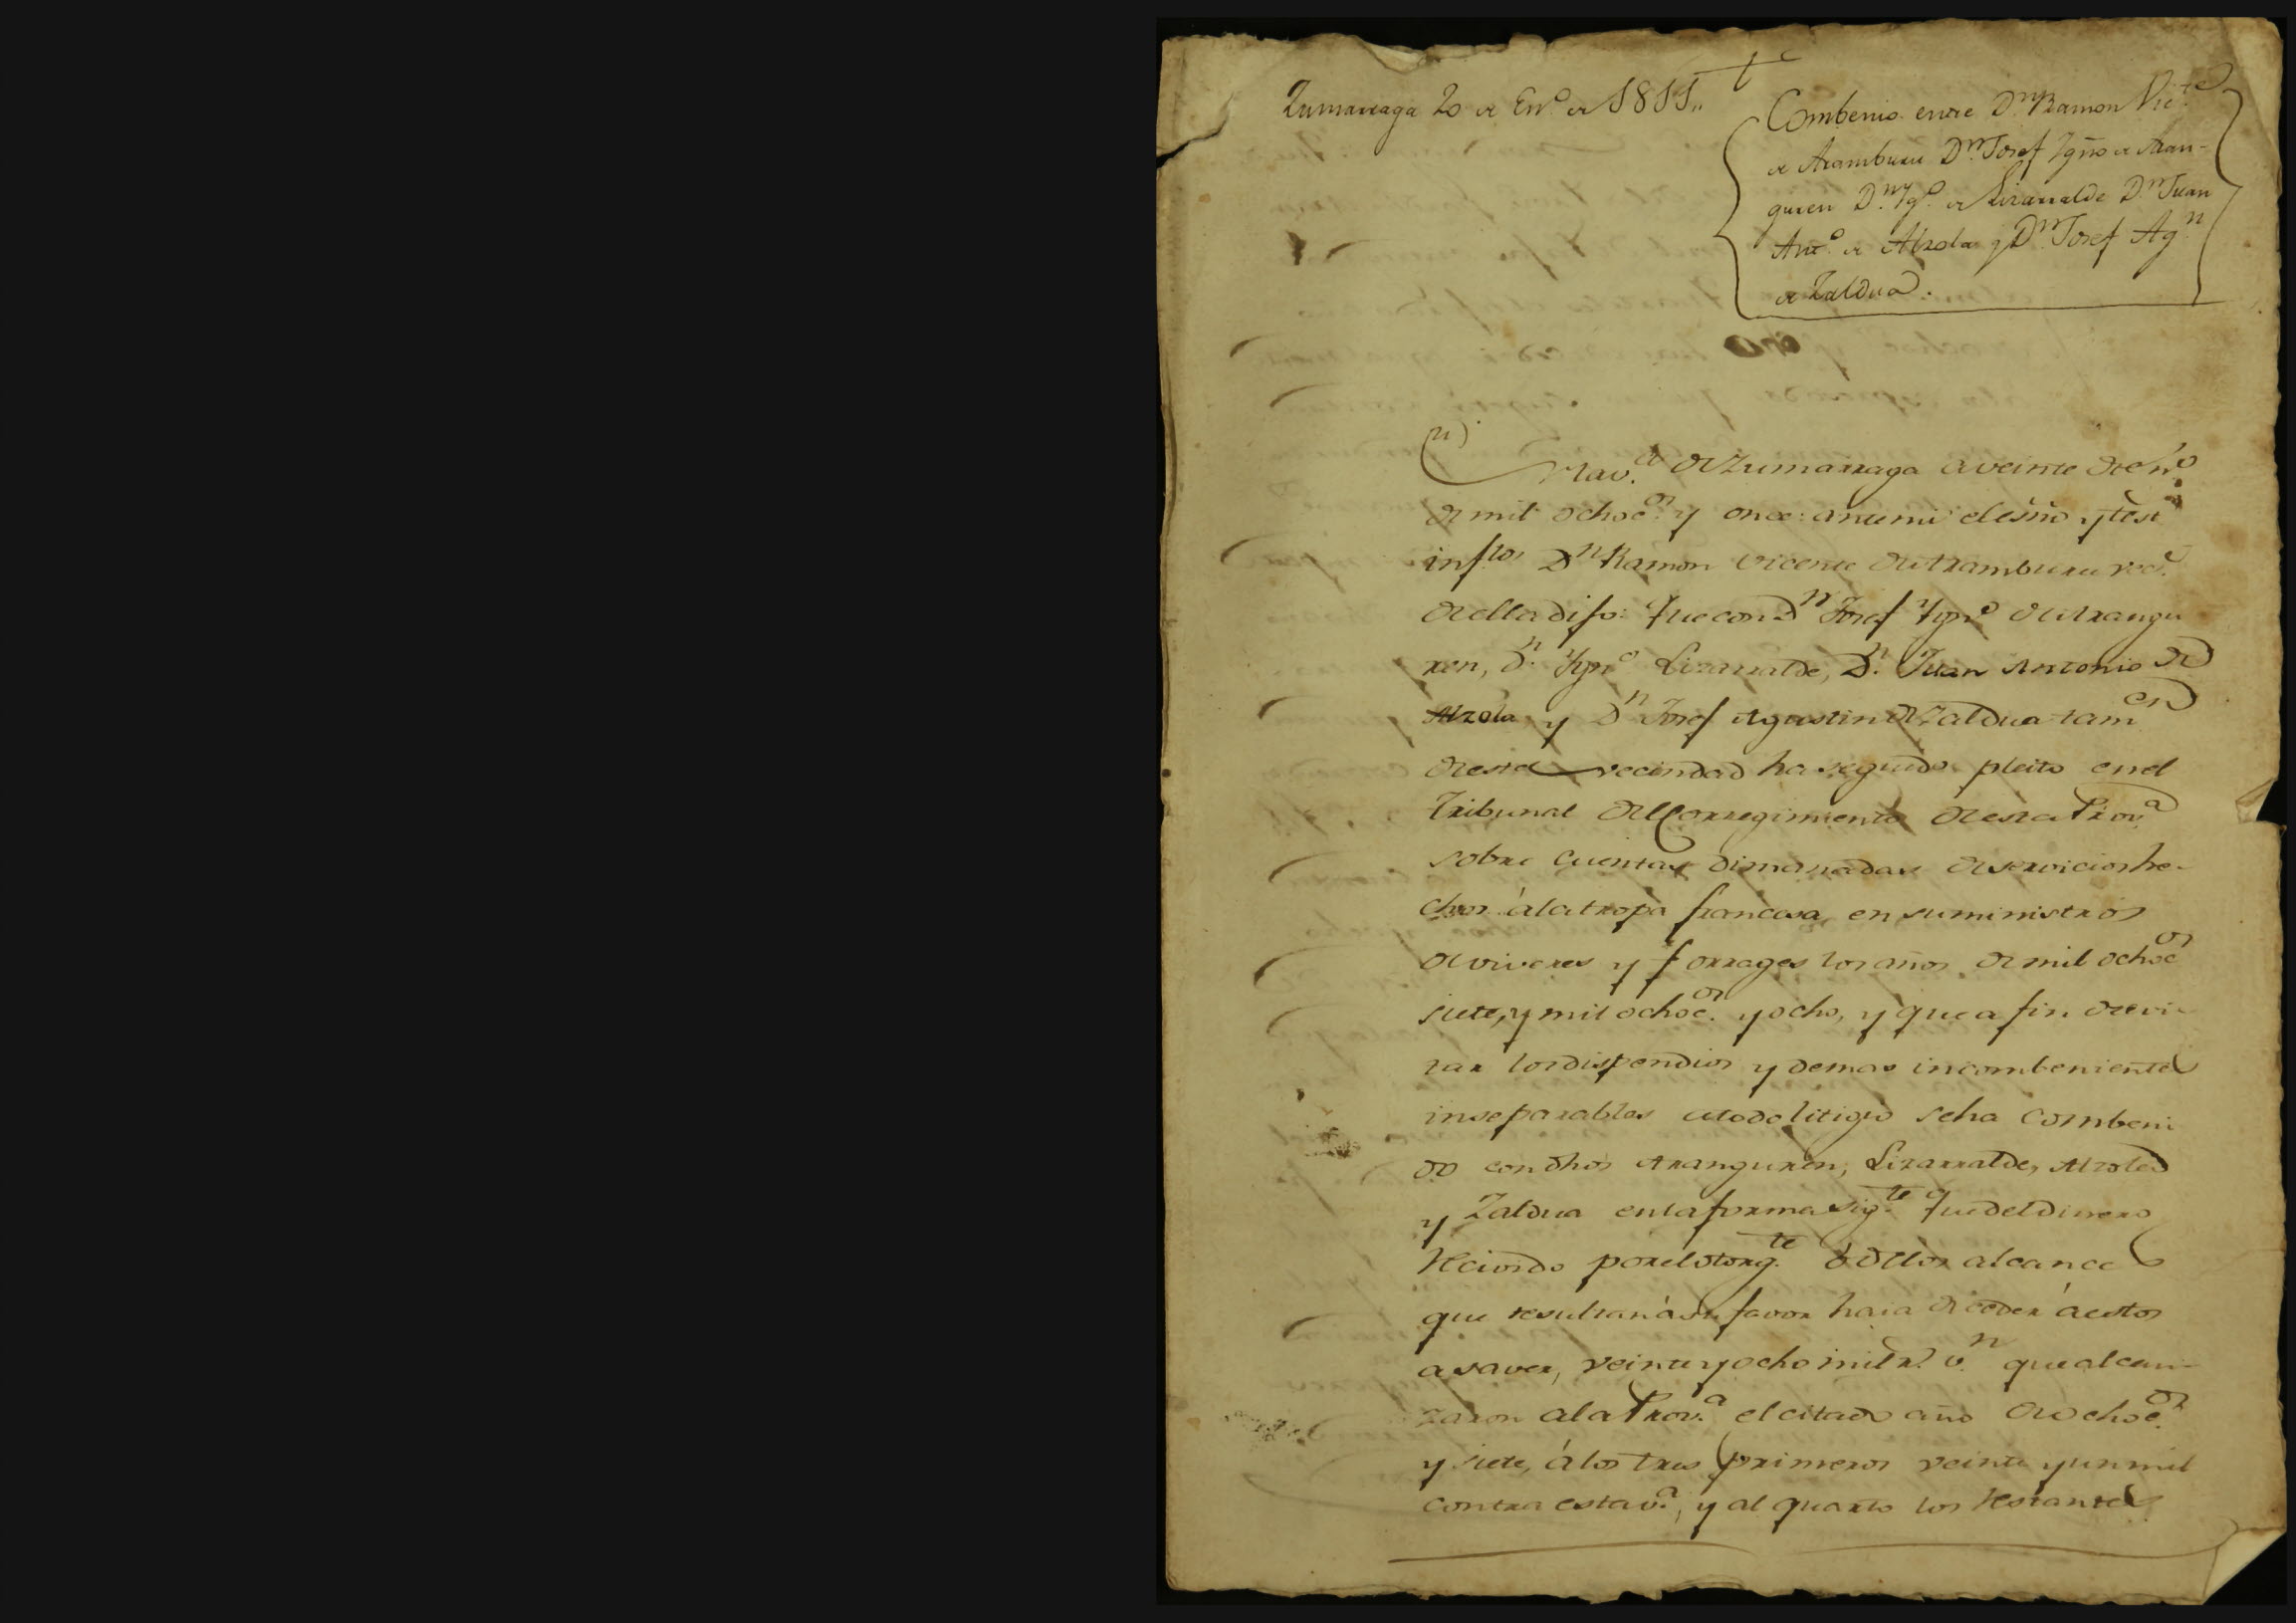 Zumarraga 20 de En.º de 1811,,
Combenio entre D.n Ramon Vic.te
de Aramburu D.n Josef Ygño de Aran-
guren D.n Yg.º de Lizarralde D.n Juan
Ant.º de Alzola y D.n Josef Ag.n
de Zaldua.
En la v.a de Zumarraga a veinte de en.º
de mil ochoc.os y once: ante mi el esno y test
inf.tos D.n Ramon Vicente de Aramburu vec.º
de ella dijo: Que con D.n Josef Ygn.º de Arangu
ren, D.n Ygn.º Lizarralde, D.n Juan Antonio de
Alzola y D.n Josef Agustin de Zaldua tam.en
de esta vecindad ha seguido pleito en el
Tribunal del Corregimiento de esta Prov.a
sobre cuentas dimanadas de servicios he-
chos á la tropa francesa en suministros
de viveres y forrages los años de mil ochoc.os
siete, y mil ochoc.os y ocho, y que a fin de evi
tar los dispendios y demas incombenientes
inseparables a todo litigio se ha combeni
do con dhos Aranguren, Lizarralde, Alzola
y Zaldua en la forma sig.te Que del dinero
recivido por el otorg.te ó de los alcances
que resultan á su favor haia de ceder á estos
a saver, veinte y ocho mil r.s v.n que alcan-
zaron a la Prov.a el citado año de ochoc.os
y siete, á los tres primeros veinte y un mil
contra esta v.a, y al quarto los restantes